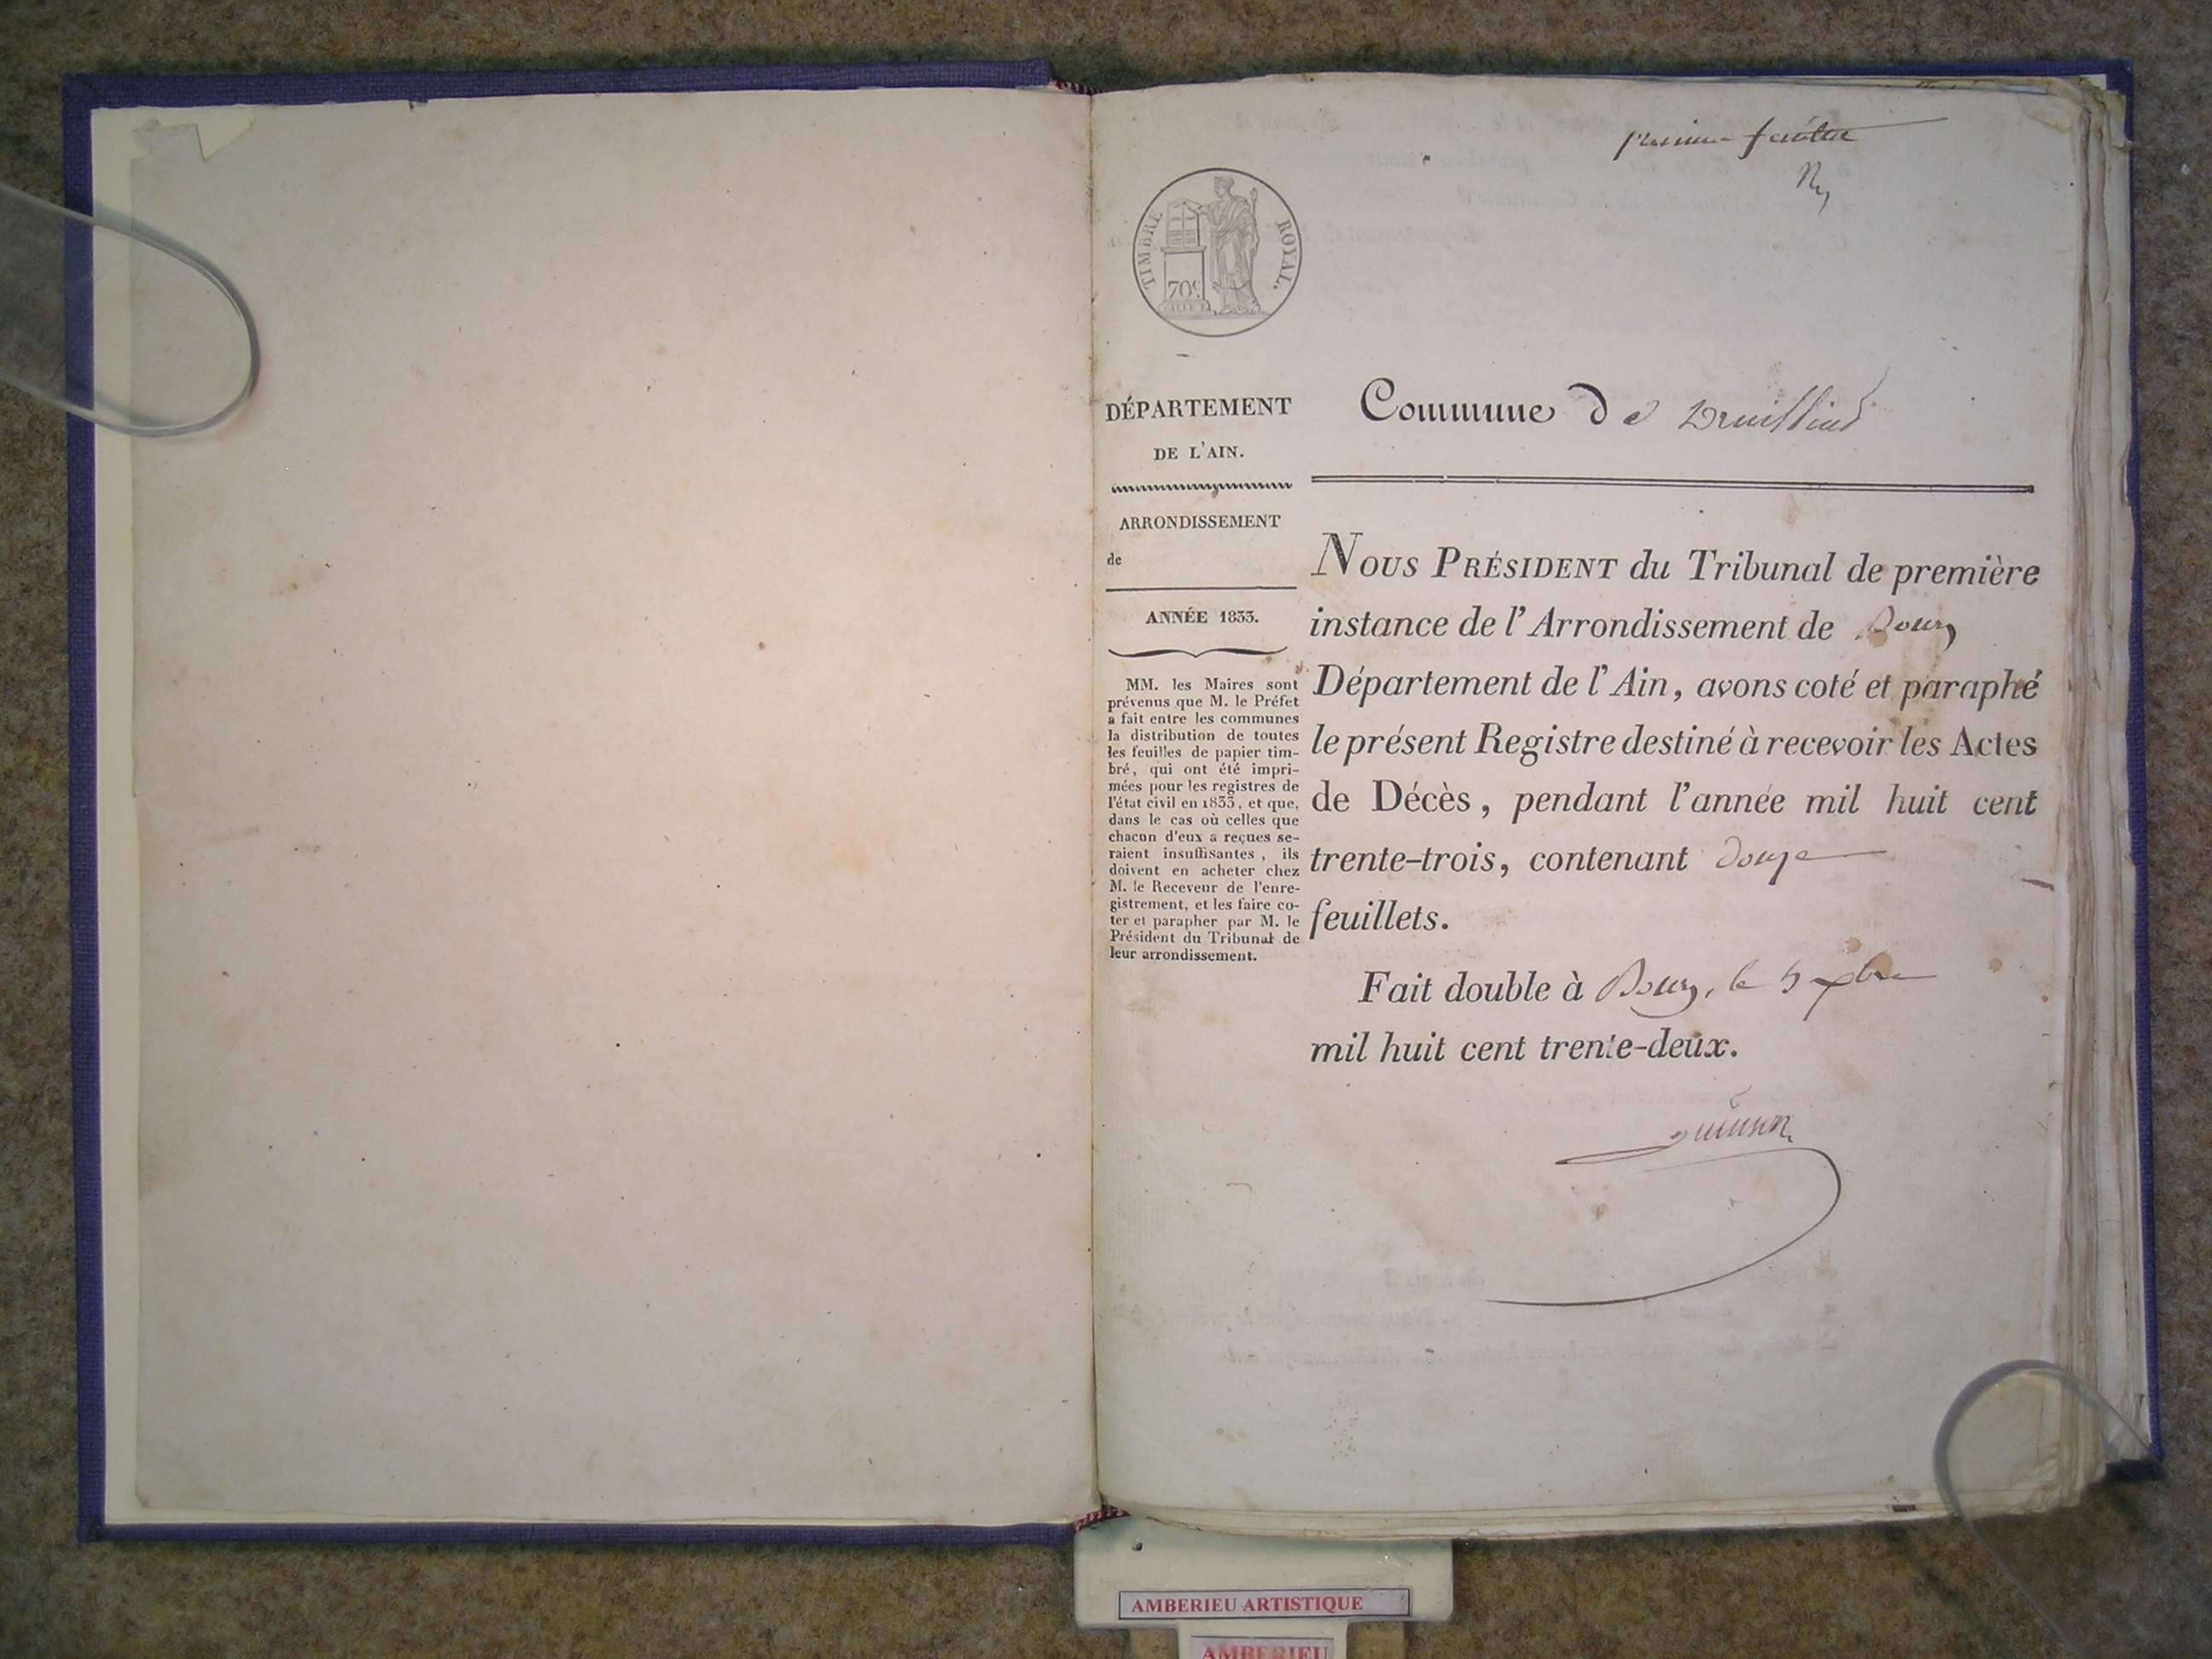 premier feuillet
TIMBRE ROYAL.
70c
DÉPARTEMENT
DE L'AIN.
ARRONDISSEMENT
de
ANNÉE 1833.
MM. les Maires sont
prévenus que M. le Préfet
a fait entre les communes
la distribution de toutes
les feuilles de papier tim-
bré, qui ont été impri-
mées pour les registres de
l'état civil en 1833, et que,
dans le cas où celles que
chacun d'eux a reçues se-
raient insuffisantes, ils
doivent en acheter chez
M. le Receveur de l'enre-
gistrement, et les faire co-
ter et parapher par M. le
Président du Tribunal de
leur arrondissement.
Commune de Druilliat
NOUS PRÉSIDENT du Tribunal de première
instance de l'Arrondissement de Bourg
Département de l'Ain, avons coté et paraphé
le présent Registre destiné à recevoir les Actes
de Décès, pendant l'année mil huit cent
trente-trois, contenant douze
feuillets.
Fait double à Bourg, le 5 xbre
mil huit cent trente-deux.
AMBERIEU ARTISTIQUE
AMBERIEU